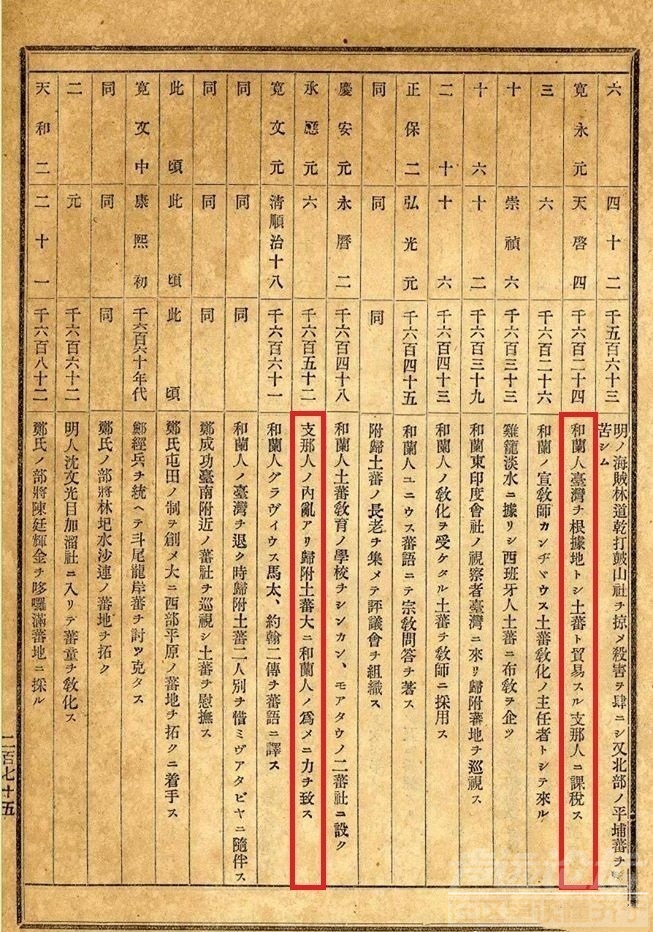 六 四十二 千五百六十三 明ノ海賊林道乾打鼓山社ヲ掠メ殺害ヲ肆ニシ又北部ノ平埔蕃ヲ
苦シム
寛永元 天啓四 千六百二十四 和蘭人臺灣ヲ根據地トシ土蕃ト貿易スル支那人ニ課税ス
三 六 千六百二十六 和蘭ノ宣敎師カンヂヾウス土蕃敎化ノ主任者トシテ來ル
十 崇禎六 千六百三十三 雞籠淡水ニ據リシ西班牙人土蕃ニ布敎ヲ企ツ
十六 十二 千六百三十九 和蘭東印度會社ノ視察者臺灣ニ來リ歸附蕃地ヲ巡視ス
二十 十六 千六百四十三 和蘭人ノ敎化ヲ受ケタル土蕃ヲ敎師ニ採用ス
正保二 弘光元 千六百四十五 和蘭人ユニウス蕃語ニテ宗敎問答ヲ著ス
同 同 同 附歸土蕃ノ長老ヲ集メテ評議會ヲ組織ス
慶安元 永曆二 千六百四十八 和蘭人土蕃敎育ノ學校ヲシンカン、モアタウノ二蕃社ニ設ク
永應元 六 千六百五十二 支那人ノ內亂アリ歸附土蕃大ニ和蘭人ノ爲メニ力ヲ致ス
寛文元 淸順治十八 千六百六十一 和蘭人グラヴイウス馬太、約翰二傳ヲ蕃語ニ譯ス
同 同 同 和蘭人ノ臺灣ヲ退ク時歸附土蕃二人別ヲ惜ミヴアタビヤニ隨伴ス
同 同 同 鄭成功臺南附近ノ蕃社ヲ巡視シ土蕃ヲ慰撫ス
此頃 此頃 此頃 鄭氏屯田ノ制ヲ創メ大ニ西部平原ノ蕃地ヲ拓クニ着手ス
寛文中 康熙初 千六百六十年代 鄭經兵ヲ統ヘテ斗尾龍岸蕃ヲ討ツ克タス
同 同 同 鄭氏ノ部將林圯水沙連ノ蕃地ヲ拓ク
二 元 千六百六十二 明人沈文光目加溜社ニ入リテ蕃童ヲ敎化ス
天和二 二十一 千六百八十二 鄭氏ノ部將陳廷輝金ヲ哆囉滿蕃地ニ採ル
二百七十五